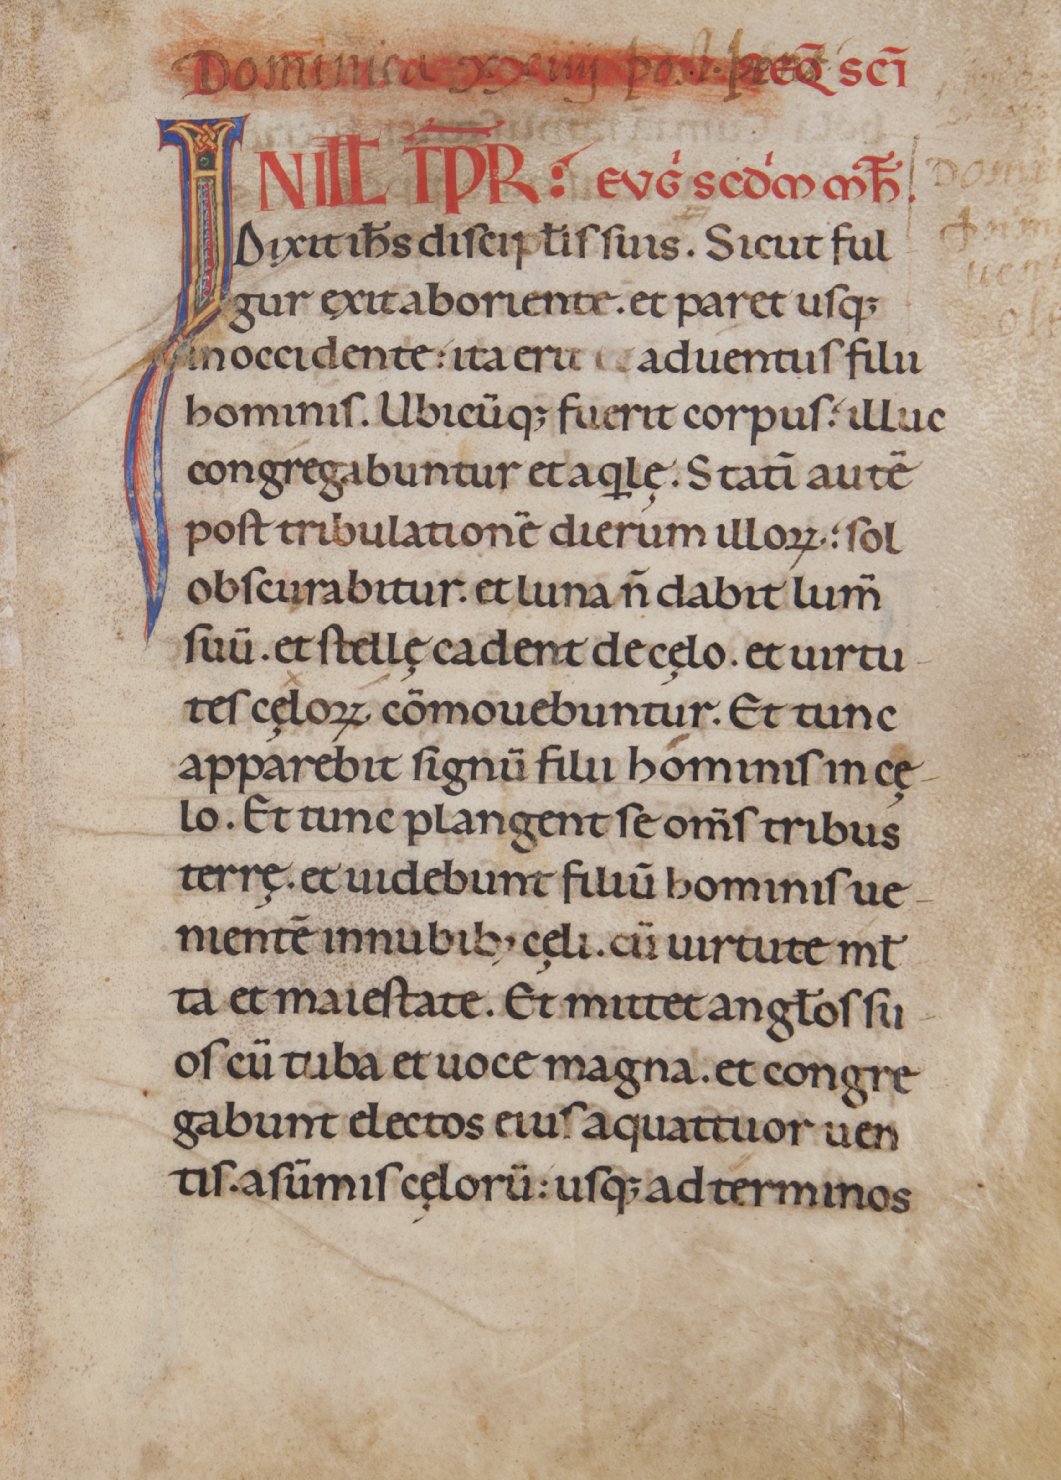 Dominica xxiiij post pent seq̄ sc̄i
IN ILL T̄P̄R: euḡ scd̄m mh̄.
Dixit ih̄s discip̄lis suis. Sicut ful
gur exit aboriente. et paret usq;
inoccidente: ita erit aduentus filii
hominis. Ubicūq; fuerit corpus: illuc
congregabuntur et aqilę. Statī autē
post tribulationē dierum illoꝝ: sol
obscurabitur. et luna n̄ dabit lum̄
suū. et stellę cadent decęlo. et uirtu-
tes cęloꝝ cōmouebuntur. Et tunc
apparebit signū filii hominis incę-
lo. Et tunc plangent se om̄s tribus
terrę. et uidebunt filiū hominis ue-
nientē innubib; cęli. cū uirtute ml̄
ta et maiestate. Et mittet angl̄os su-
os cū tuba et uoce magna. et congre
gabunt electos eius aquattuor uen
tis. asūmis cęlorū: usq; adterminos